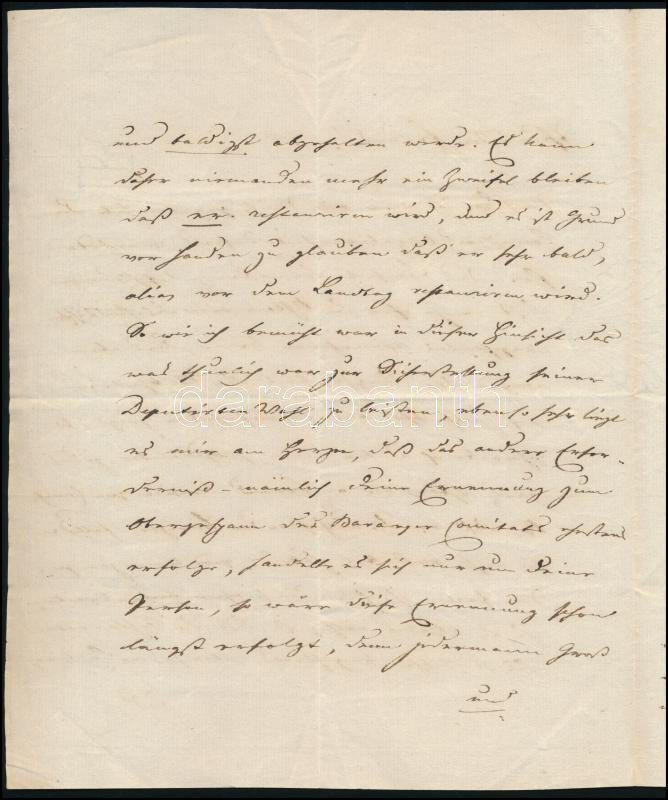 und baldigst abgehalten werde. Es kann
daher niemanden mehr ein Zweifel bleiben
daß er. restauriren wird, denn es ist Grund
vorhanden zu glauben daß er sehr bald,
alias vor dem Landtag restauriren wird.
So wie ich bemüht war in dieser Hinsicht das
was thunlich war zur Sicherstellung seiner
Deputirten Wahl zu leisten, ebenso sehr liegt
es mir am Herzen, daß das andere Erfor-
derniß – nämlich Deine Ernennung zum
Obergespann des Baranyer Comitats ehestens
erfolge, handelte es sich nur um Deine
Person, so wäre diese Ernennung schon
längst erfolgt, denn jedermann Groß
und
darabanth